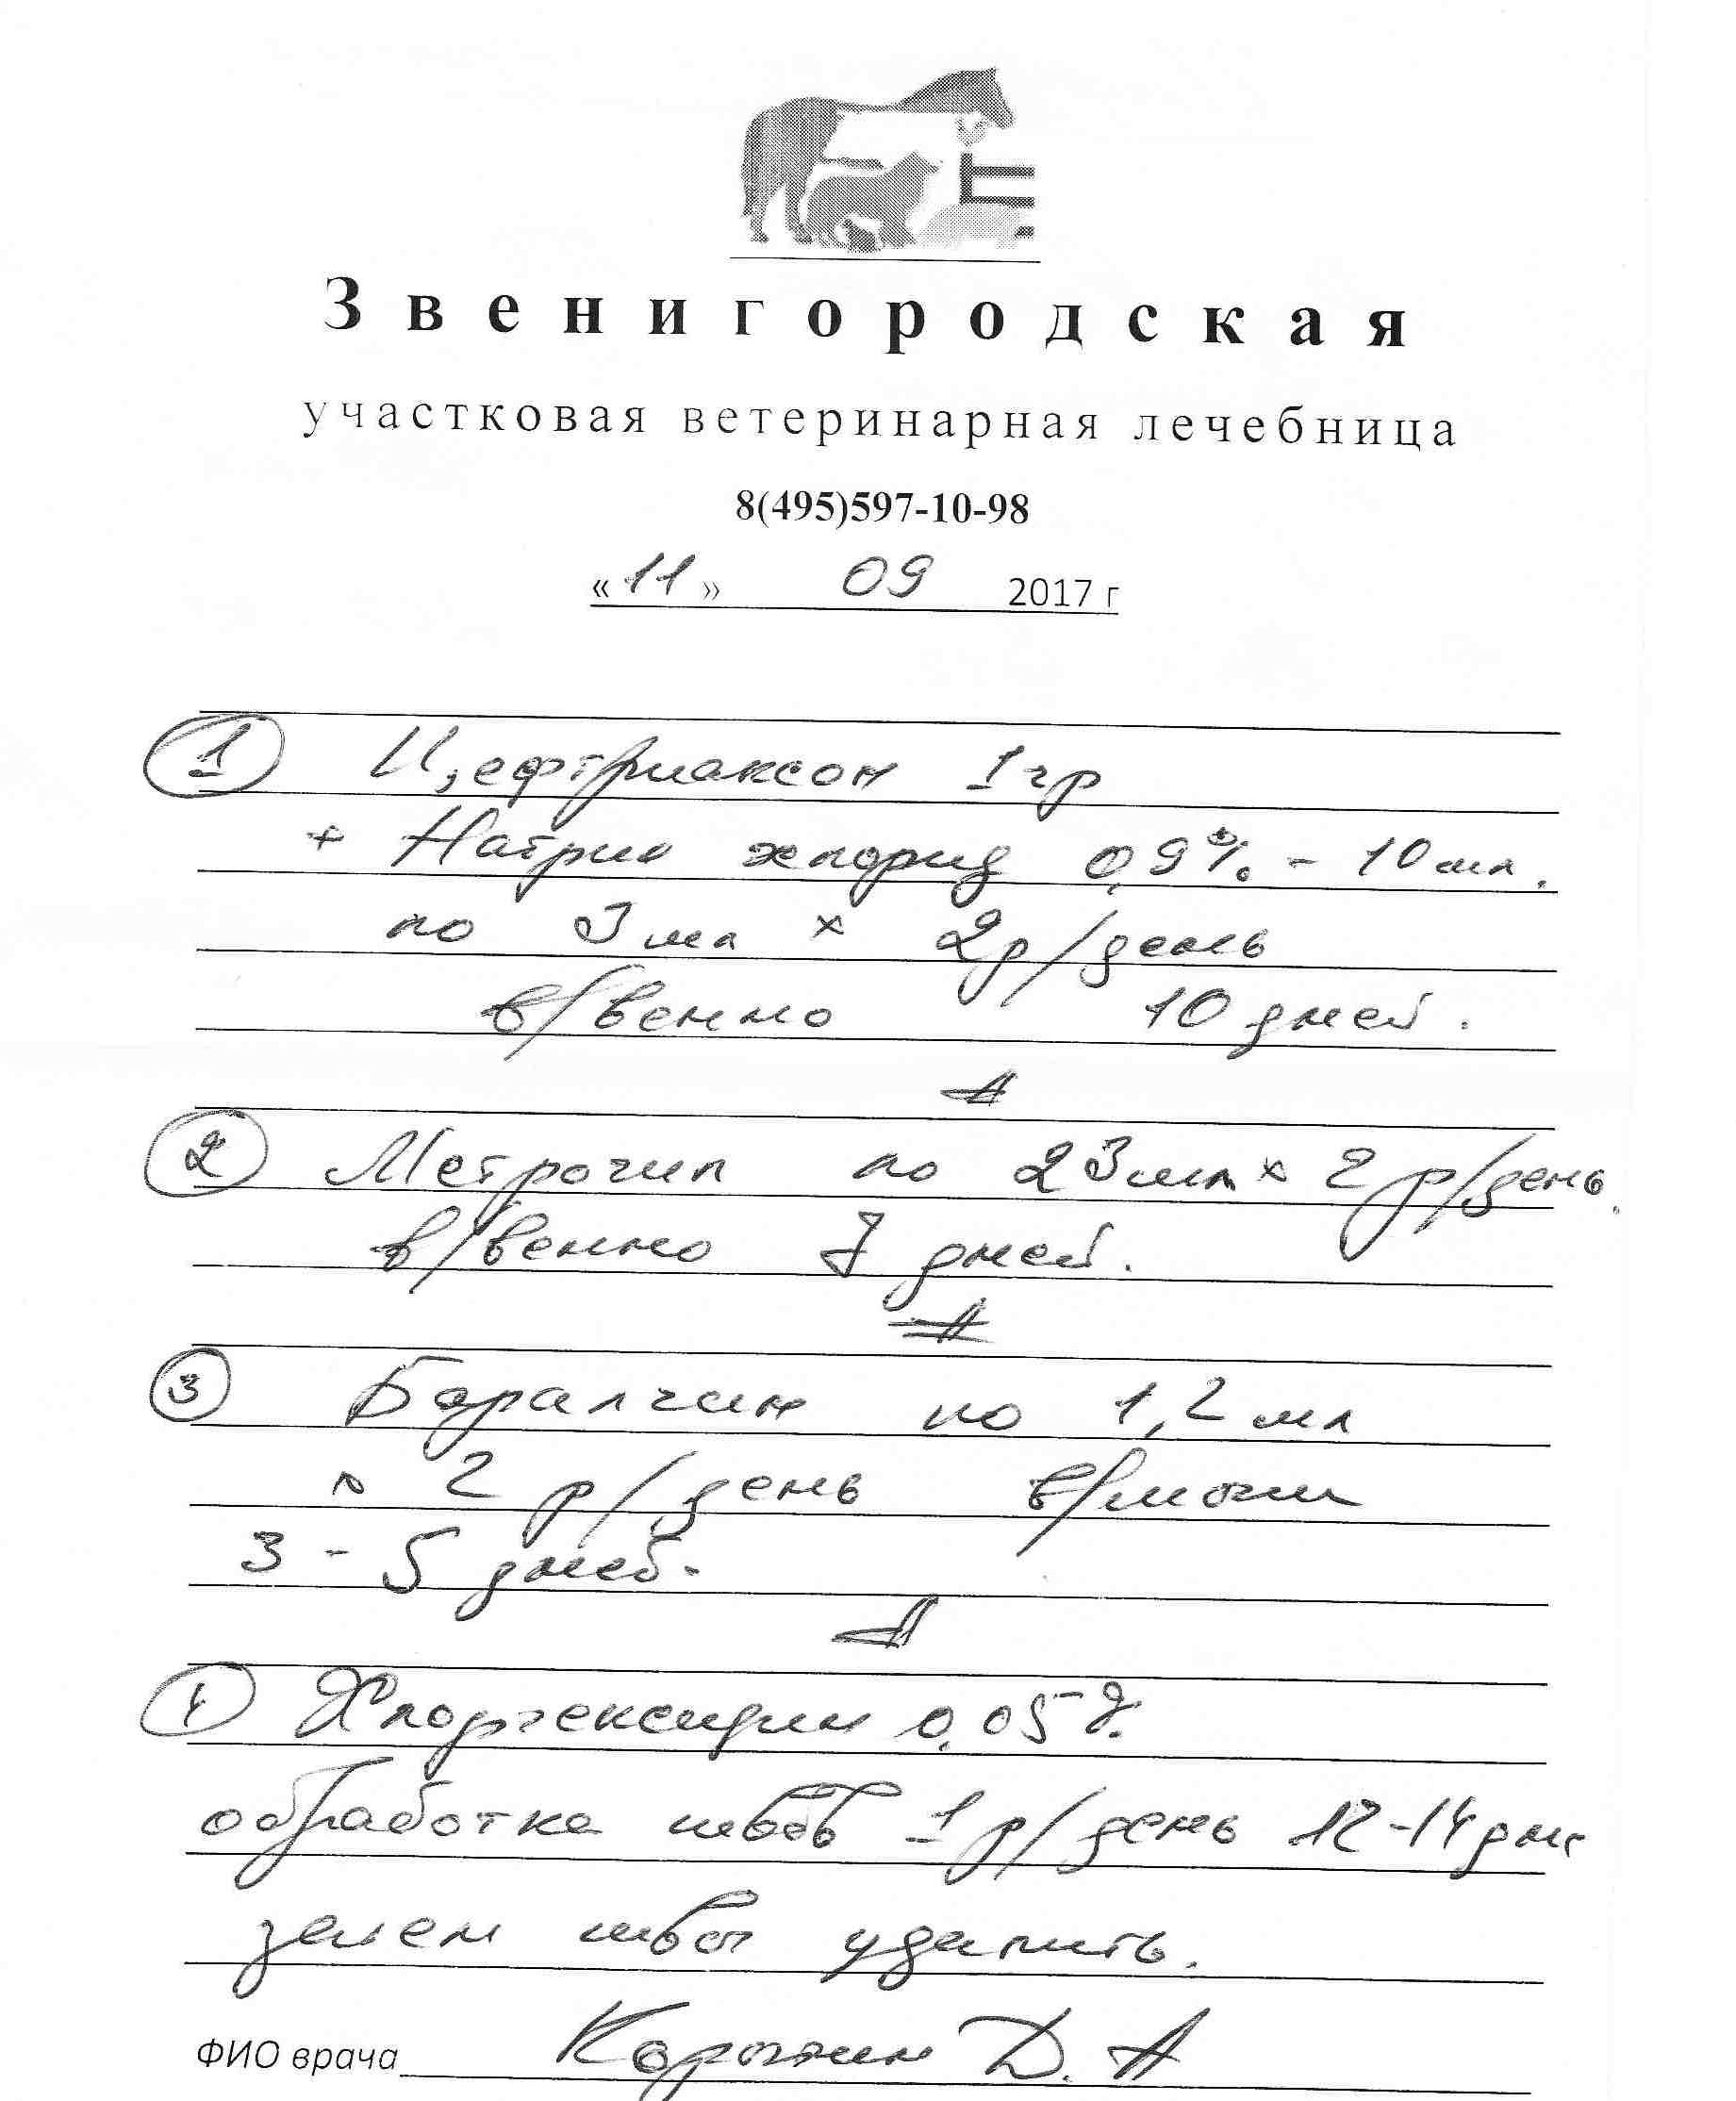 Звенигородская
участковая ветеринарная лечебница
8(495)597-10-98
«11» 09 2017 г
1 Цефтриаксон 1 гр
+ Натрия хлорид 0,9% - 10 мл.
по 3 мл × 2р/день
в/венно 10 дней.
2 Метрогил по 23 мл × 2 р/день.
в/венно 7 дней.
3 Баралгин по 1,2 мл
× 2 р/день в/мыш
3 - 5 дней.
4 Хлоргексидин 0,05%
обработка швов 1 р/день 12-14 дне
затем швы удалить.
ФИО врача Д. А